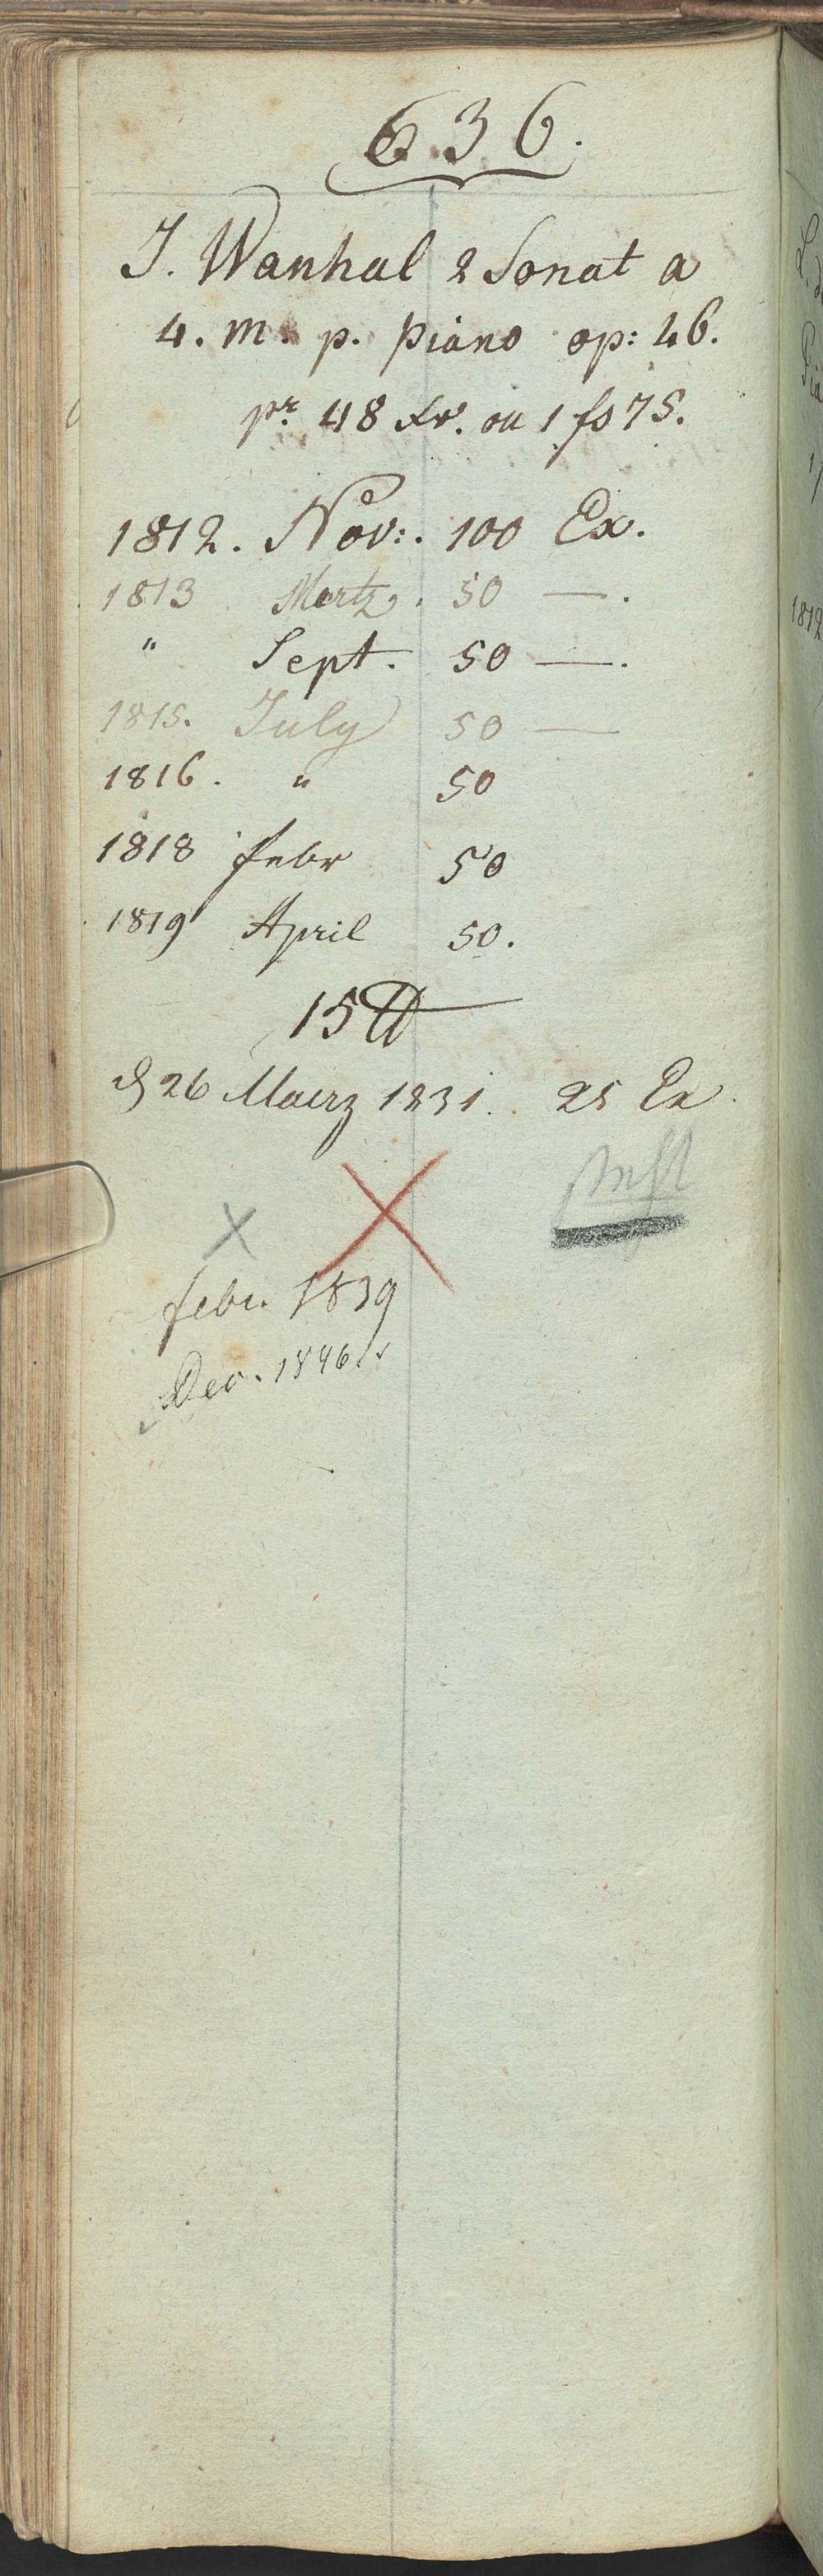 636.
J. Wanhal 2 Sonat a
4. m. p. piano op: 46.
pr. 48 Xr. ou 1 fs 75.
1812. Nov:. 100 Ex.
1813 Mertz. 50 —.
" Sept. 50 —.
1815. July 50 —
1816. " 50
1818 febr 50
1819 April 50.
15 ℔
d 26 Maerz 1831. 25 Ex
febr. 1839
Dec. 1846